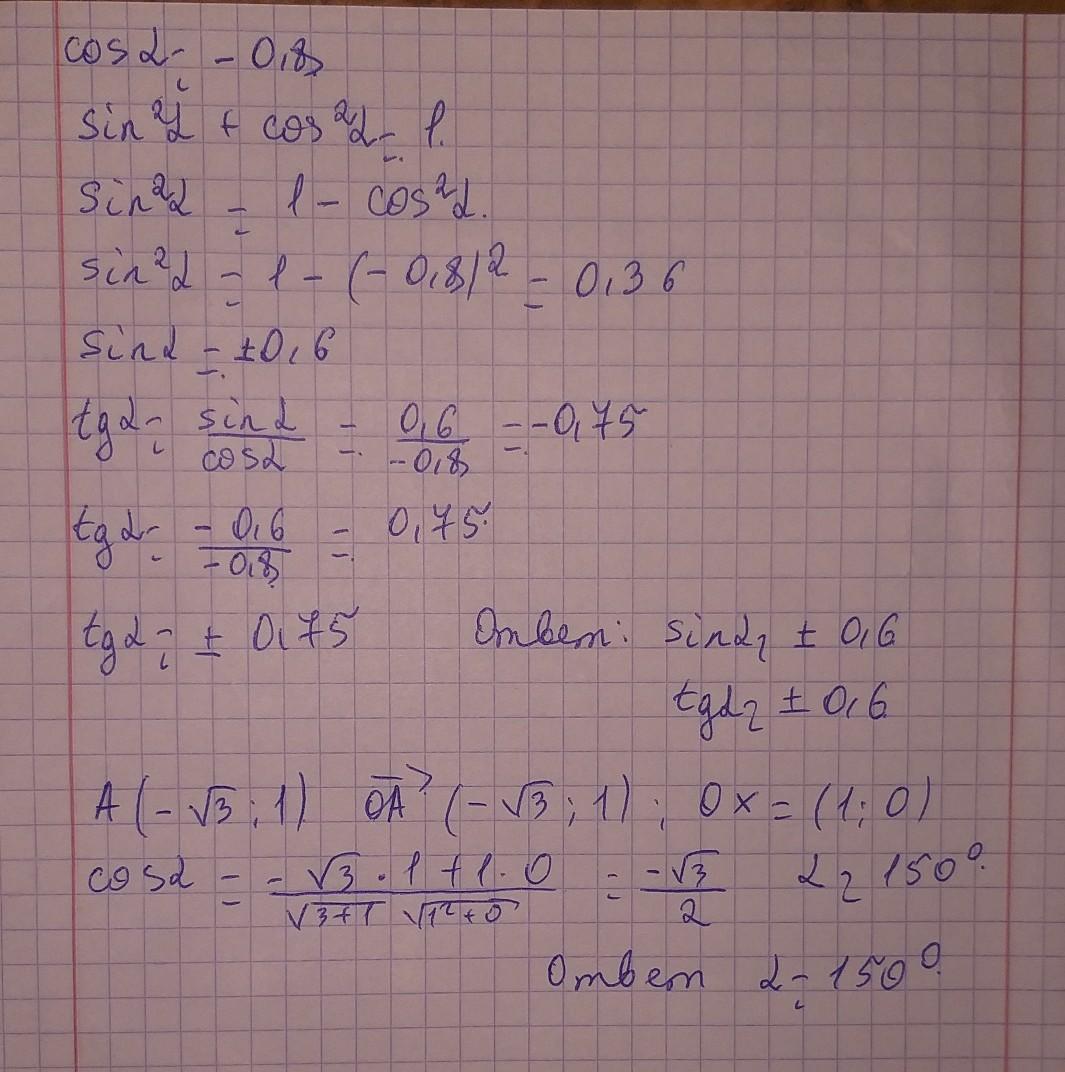 cos α = - 0,8
sin²α + cos²α = 1.
sin²α = 1 - cos²α.
sin²α = 1 - (- 0,8)² = 0,36
sin α = ±0,6
tg α = sin α / cos α = 0,6 / -0,8 = -0,75
tg α = - 0,6 / -0,8 = 0,75.
tg α = ± 0,75 Ответ: sin α = ± 0,6
tg α = ± 0,6
A (- √3 ; 1) OA⃗ (- √3 ; 1) ; Ox = (1; 0)
cos α = - √3 · 1 + 1 · 0 / √3+1 √1²+0 = -√3 / 2 α = 150°.
Ответ α = 150°.